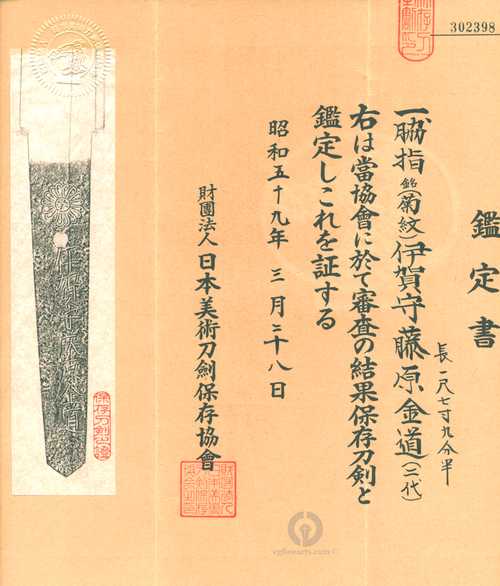 302398
鑑定書
一、脇指 銘(菊紋)伊賀守藤原金道(二代)
長一尺七寸九分半
右は當協會に於て審査の結果保存刀剣と
鑑定しこれを証する
昭和五十九年 三月二十八日
財團法人 日本美術刀劍保存協會
vgfinearts.com ©